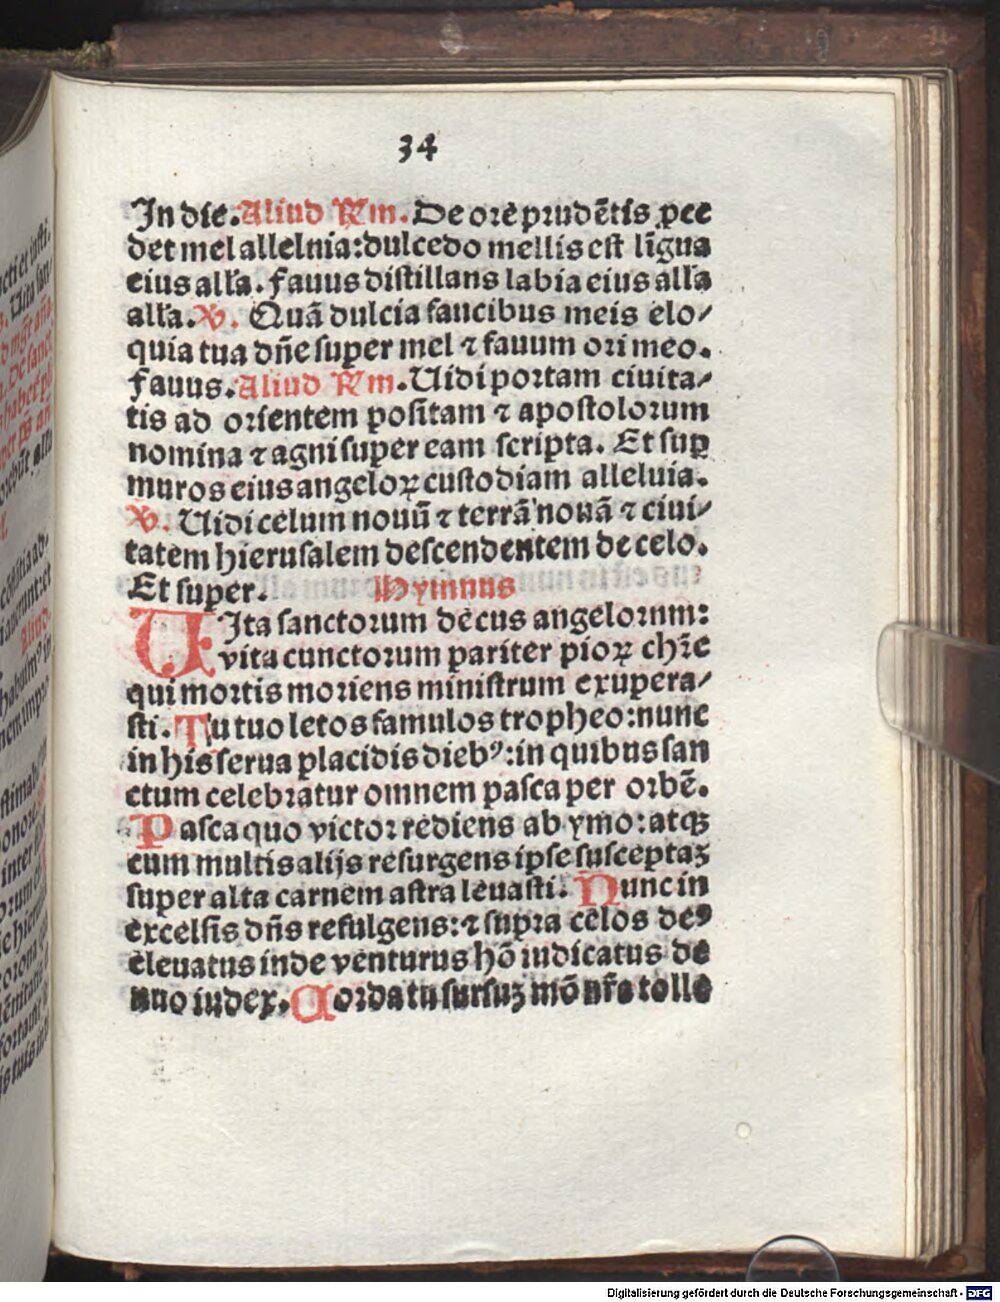 34
In die. Aliud Rm. De ore prudētis pce
det mel allelnia: dulcedo mellis est līgua
eius alla. fauus distillans labia eius alla
alla. V. Quā dulcia faucibus meis elo/
quia tua dn̄e super mel ⁊ fauum ori meo.
fauus. Aliud Rm. Uidi portam ciuita/
tis ad orientem positam ⁊ apostolorum
nomina ⁊ agni super eam scripta. Et sup
muros eius angeloꝝ custodiam alleluia.
V. Uidi celum nouū ⁊ terrā nouā ⁊ ciui/
tatem hierusalem descendentem de celo.
Et super. Hymnus
UIta sanctorum decus angelorum:
vita cunctorum pariter pioꝝ chr̄e
qui mortis moriens ministrum exupera/
sti. Tu tuo letos famulos tropheo: nunc
in his serua placidis dieb⁹: in quibus san
ctum celebratur omnem pasca per orbē.
Pasca quo victor rediens ab ymo: atqꝫ
cum multis alijs resurgens ipse susceptaꝫ
super alta carnem astra leuasti. Nunc in
excelsis dn̄s refulgens: ⁊ supra celos de⁹
eleuatus inde venturus hō iudicatus de
nuo iudex. Corda tu sursuꝫ mō nr̄a tolle
cti et iusti.
Digitalisierung gefördert durch die Deutsche Forschungsgemeinschaft - DFG